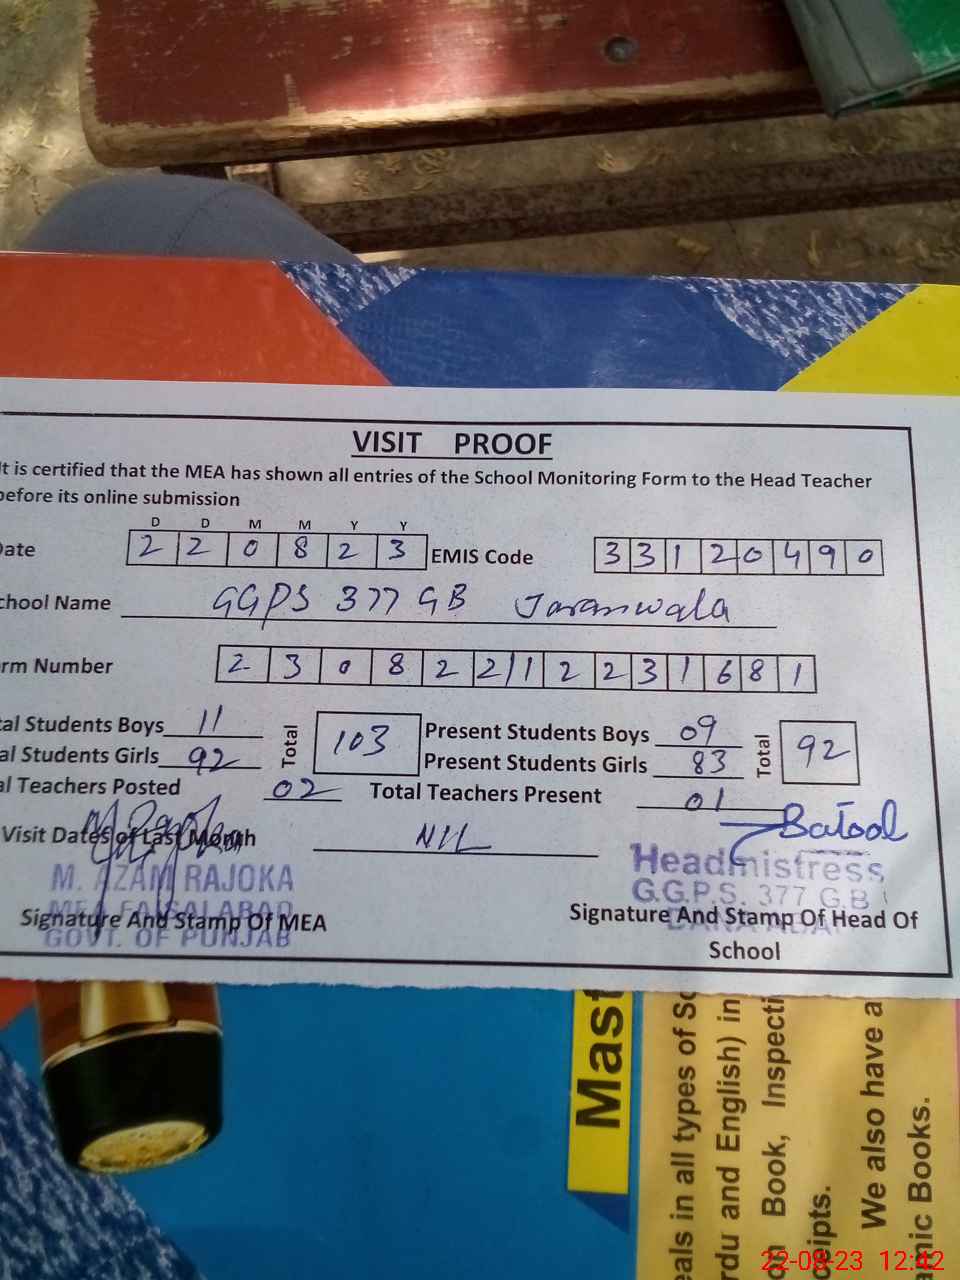 VISIT PROOF
It is certified that the MEA has shown all entries of the School Monitoring Form to the Head Teacher
before its online submission
D D M M Y Y
ate 2 2 0 8 2 3 EMIS Code 3 3 1 2 0 4 9 0
chool Name GGPS 377 GB Jaranwala
rm Number 2 3 0 8 2 2 1 2 2 3 1 6 8 1
al Students Boys 11 Total 103 Present Students Boys 09 Total 92
al Students Girls 92 Present Students Girls 83
al Teachers Posted 02 Total Teachers Present 01
Visit Dates of Last Month NIL Batool
M. AZAM RAJOKA
MEA FAISALABAD
GOVT. OF PUNJAB
Signature And Stamp Of MEA
Headmistress
G.G.P.S. 377 G.B
Signature And Stamp Of Head Of
School
Mast
eals in all types of Sc
rdu and English) in
on Book, Inspecti
ceipts.
We also have a
nic Books.
22-08-23 12:42